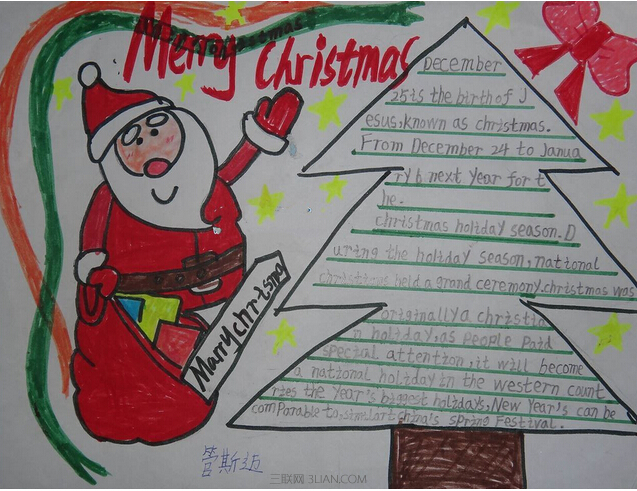 Merry Christmas
December
25is the birth of J
esus,known as christmas.
From December 24 to Janua
ry 6 next year for t
he.
christmas holiday season.D
uring the holiday season,national
christians held a grand ceremony.christmas was
originally a christia
n holiday,as people paid
special attention,it will become
a national holiday in the western count
ries the year's biggest holidays,New Year's can be
comparable to,similart China's spring Festival.
Marry christmas
三联网 3LIAN.COM